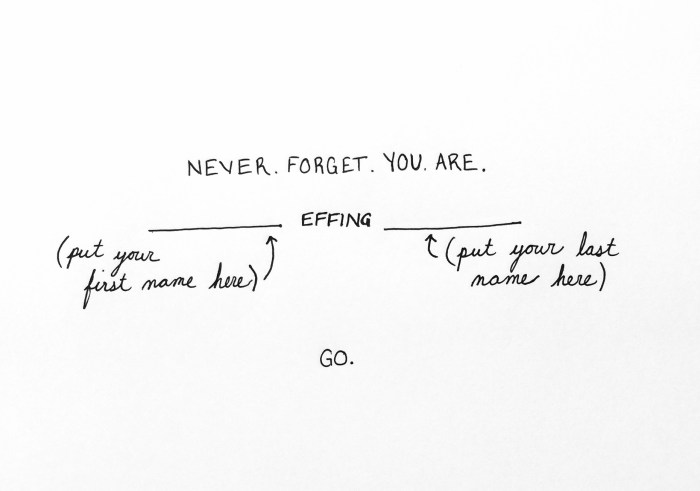 NEVER. FORGET. YOU. ARE.
EFFING
(put your
first name here)
(put your last
name here)
GO.